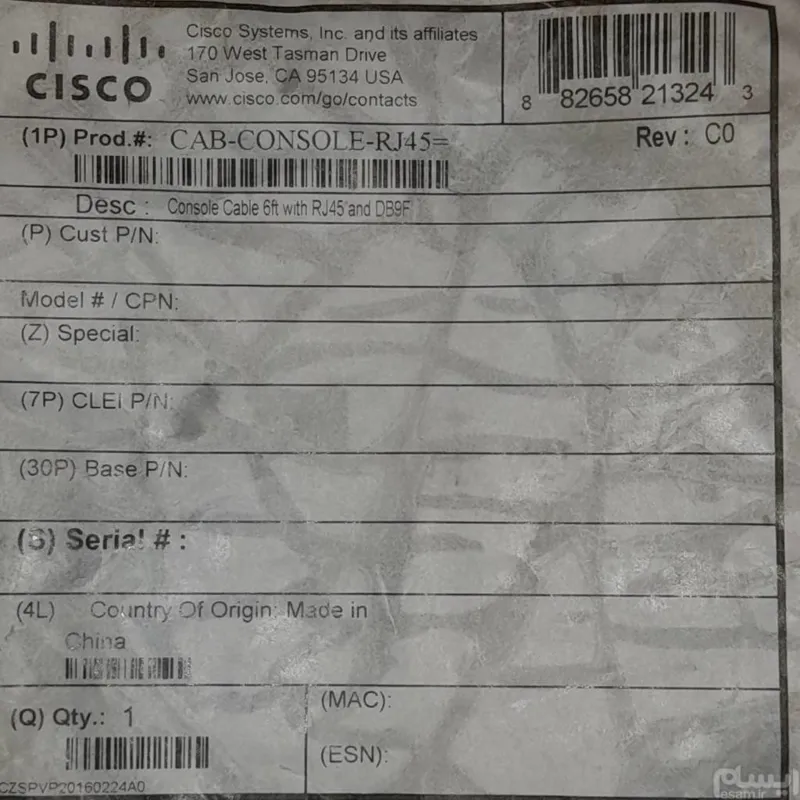 CISCO
Cisco Systems, Inc. and its affiliates
170 West Tasman Drive
San Jose, CA 95134 USA
www.cisco.com/go/contacts
8 82658 21324 3
(1P) Prod.#: CAB-CONSOLE-RJ45=
Rev: C0
Desc : Console Cable 6ft with RJ45 and DB9F
(P) Cust P/N:
Model # / CPN:
(Z) Special:
(7P) CLEI P/N:
(30P) Base P/N:
(S) Serial # :
(4L) Country Of Origin: Made in
China
(Q) Qty.: 1
(MAC):
(ESN):
CZSPVP20160224A0
ایسام
esam.ir